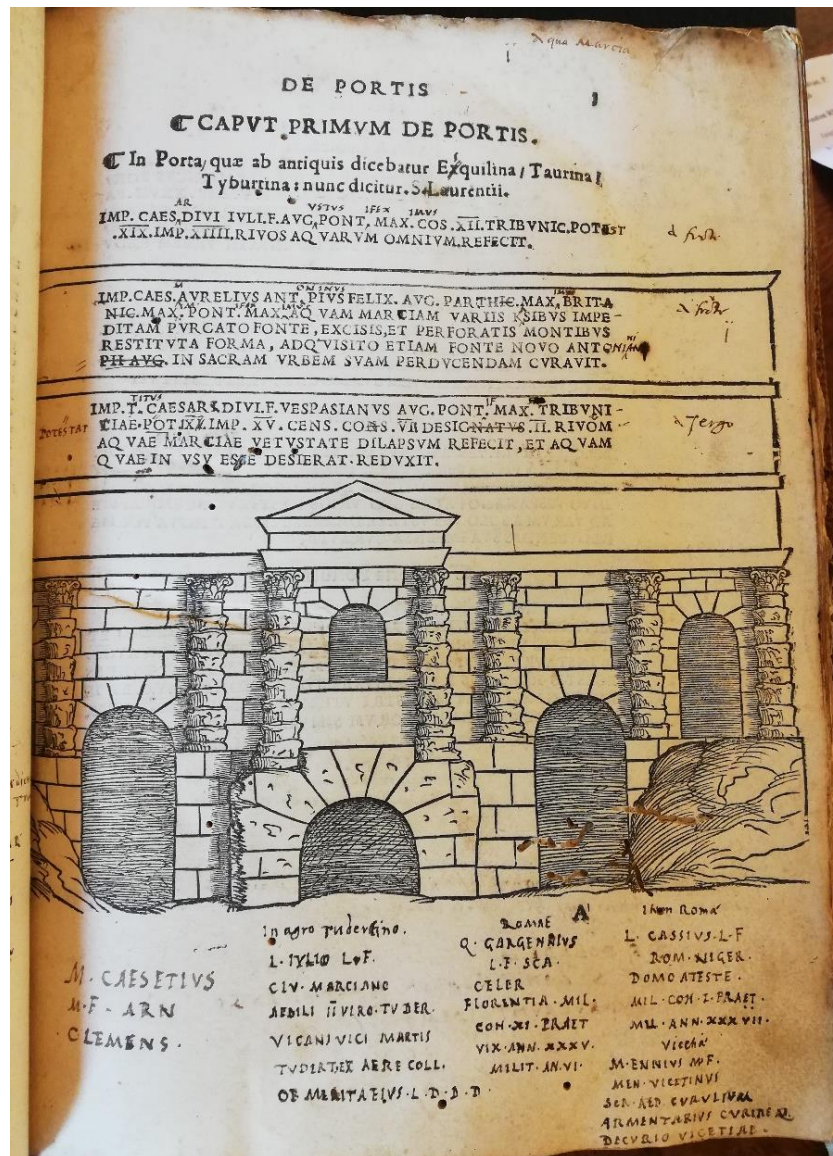 Aqua Marcia
DE PORTIS
CAPVT PRIMVM DE PORTIS.
In Porta, quæ ab antiquis dicebatur Exquilina, Taurina,
Tyburtina: nunc dicitur .S. Laurentii.
AR VSTVS IFEX IMVS
IMP. CAES. DIVI IVLI.F. AVG. PONT. MAX. COS. XII. TRIBVNIC. POTEST
XIX. IMP. XIIII. RIVOS AQVARVM OMNIVM. REFECIT.
M ONINVS
IMP. CAES. AVRELIVS ANT. PIVS FELIX. AVG. PARTHIC. MAX. BRITA
NIC. MAX. PONT. MAX. AQVAM MARCIAM VARIIS KSIBVS IMPE-
DITAM PVRGATO FONTE, EXCISIS, ET PERFORATIS MONTIBVS
RESTITVTA FORMA, ADQVISITO ETIAM FONTE NOVO ANTONIANI
PII AVG. IN SACRAM VRBEM SVAM PERDVCENDAM CVRAVIT.
TITVS IF
IMP. T. CAESAR. DIVI.F. VESPASIANVS AVG. PONT. MAX. TRIBVNI-
POTESTAT CIAE. POT. IX. IMP. XV. CENS. COS. VII DESIGNATVS .II. RIVOM a Tergo
AQVAE MARCIAE VETVSTATE DILAPSVM REFECIT, ET AQVAM
QVAE IN VSV ESSE DESIERAT. REDVXIT.
A
M. CAESETIVS
M·F· ARN
CLEMENS.
In agro Tudertino.
L. IVLIO L.F.
CLV. MARCIANO
AEDILI IIVIRO. TVDER.
VICANI VICI MARTIS
TVDERT. EX AERE COLL.
OB MERITA EIVS. L. D. D. D
ROMAE
Q. GARGENNIVS
L. F. SCA.
CELER
FLORENTIA. MIL.
COH. XI. PRAET
VIX. ANN. XXXV.
MILIT. AN. VI.
Item Romæ
L. CASSIVS. L. F
ROM. NIGER.
DOMO ATESTE.
MIL. COH. I. PRAET.
MIL. ANN. XXXVII.
M. ENNIVS M. F.
MEN. VICETINVS
SCR. AED. CVRVLIVM
ARMENTARIVS
DECVRIO VICETIAE.